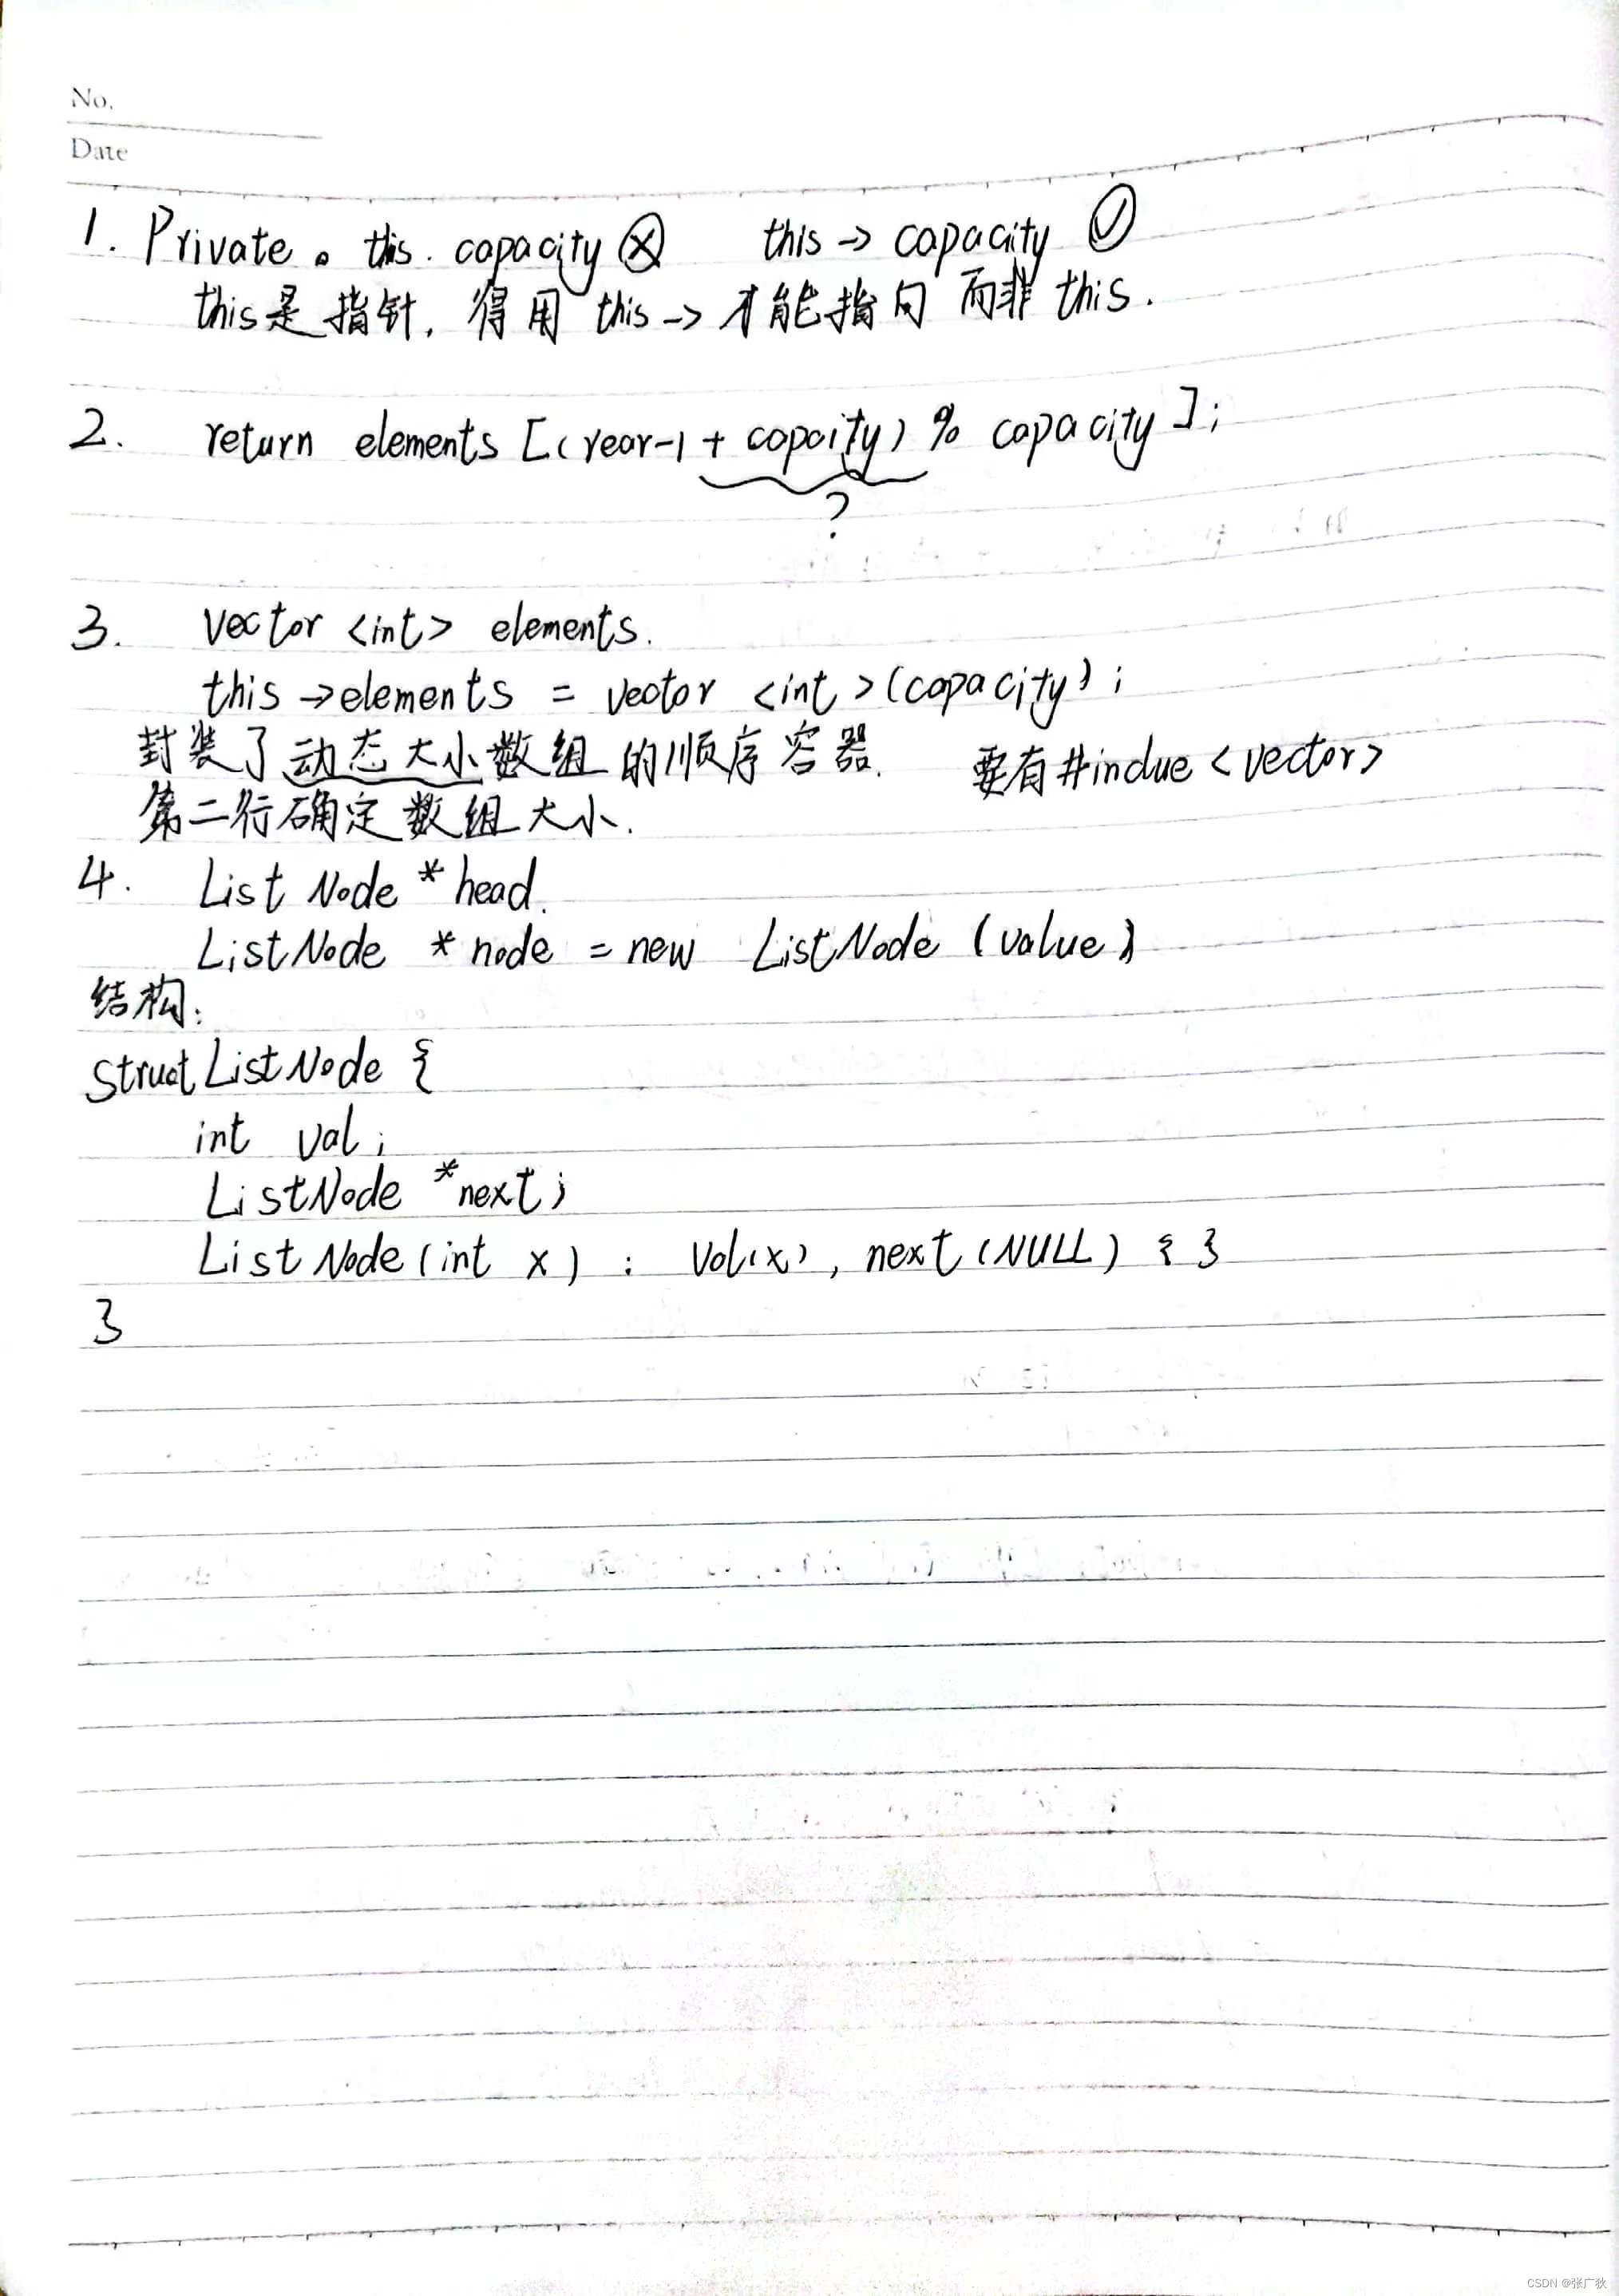 No.
Date
1. Private。 this. capacity ⓧ this -> capacity ✓
this是指针, 得用 this -> 才能指向 而非 this.
2. return elements [(rear-1 + capcity) % capacity ];
?
3. vector <int> elements.
this ->elements = vector <int>(capacity);
封装了动态大小数组的顺序容器. 要有#indue <vector>
第二行确定数组大小.
4. List Node * head.
ListNode * node = new ListNode (value)
结构:
struct ListNode {
int val;
ListNode *next;
List Node(int x) : val(x), next (NULL) { }
}
CSDN @张广狄